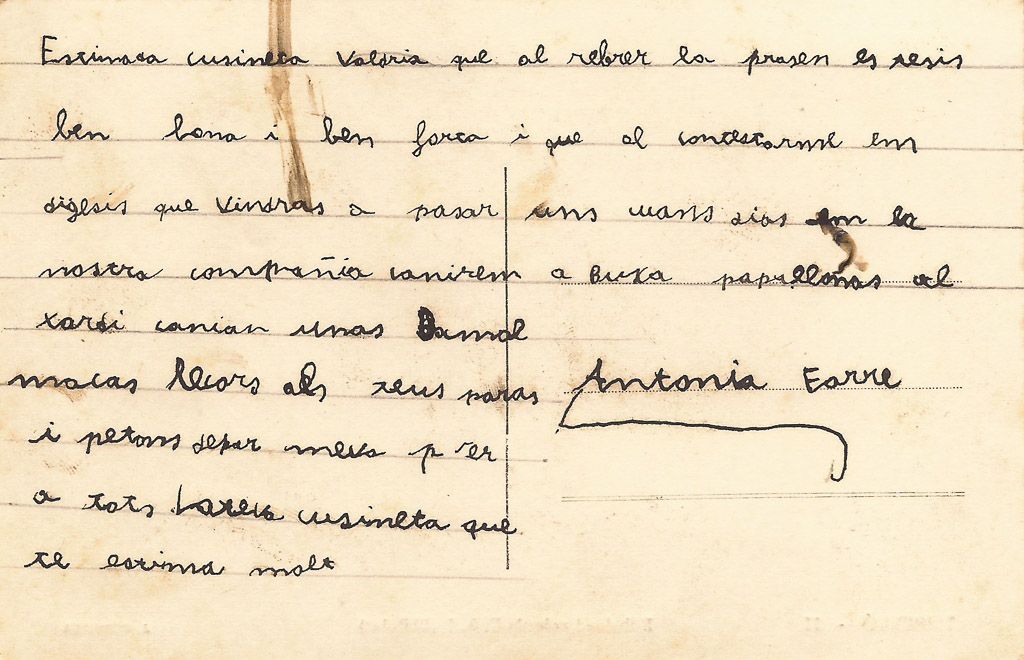 Estimada cusineta Valdria que al rebrer la prasen es tesis
ben bona i ben forta i que al contestarme em
digesis que Vindras a pasar uns cuans dias em la
nostra compañia canirem a Buxa papallonas al
xardi canian unas
macas Recors als teus paras
i petons depar meva per
a tots Lateva cusineta que
te estima molt
Antonia Farre